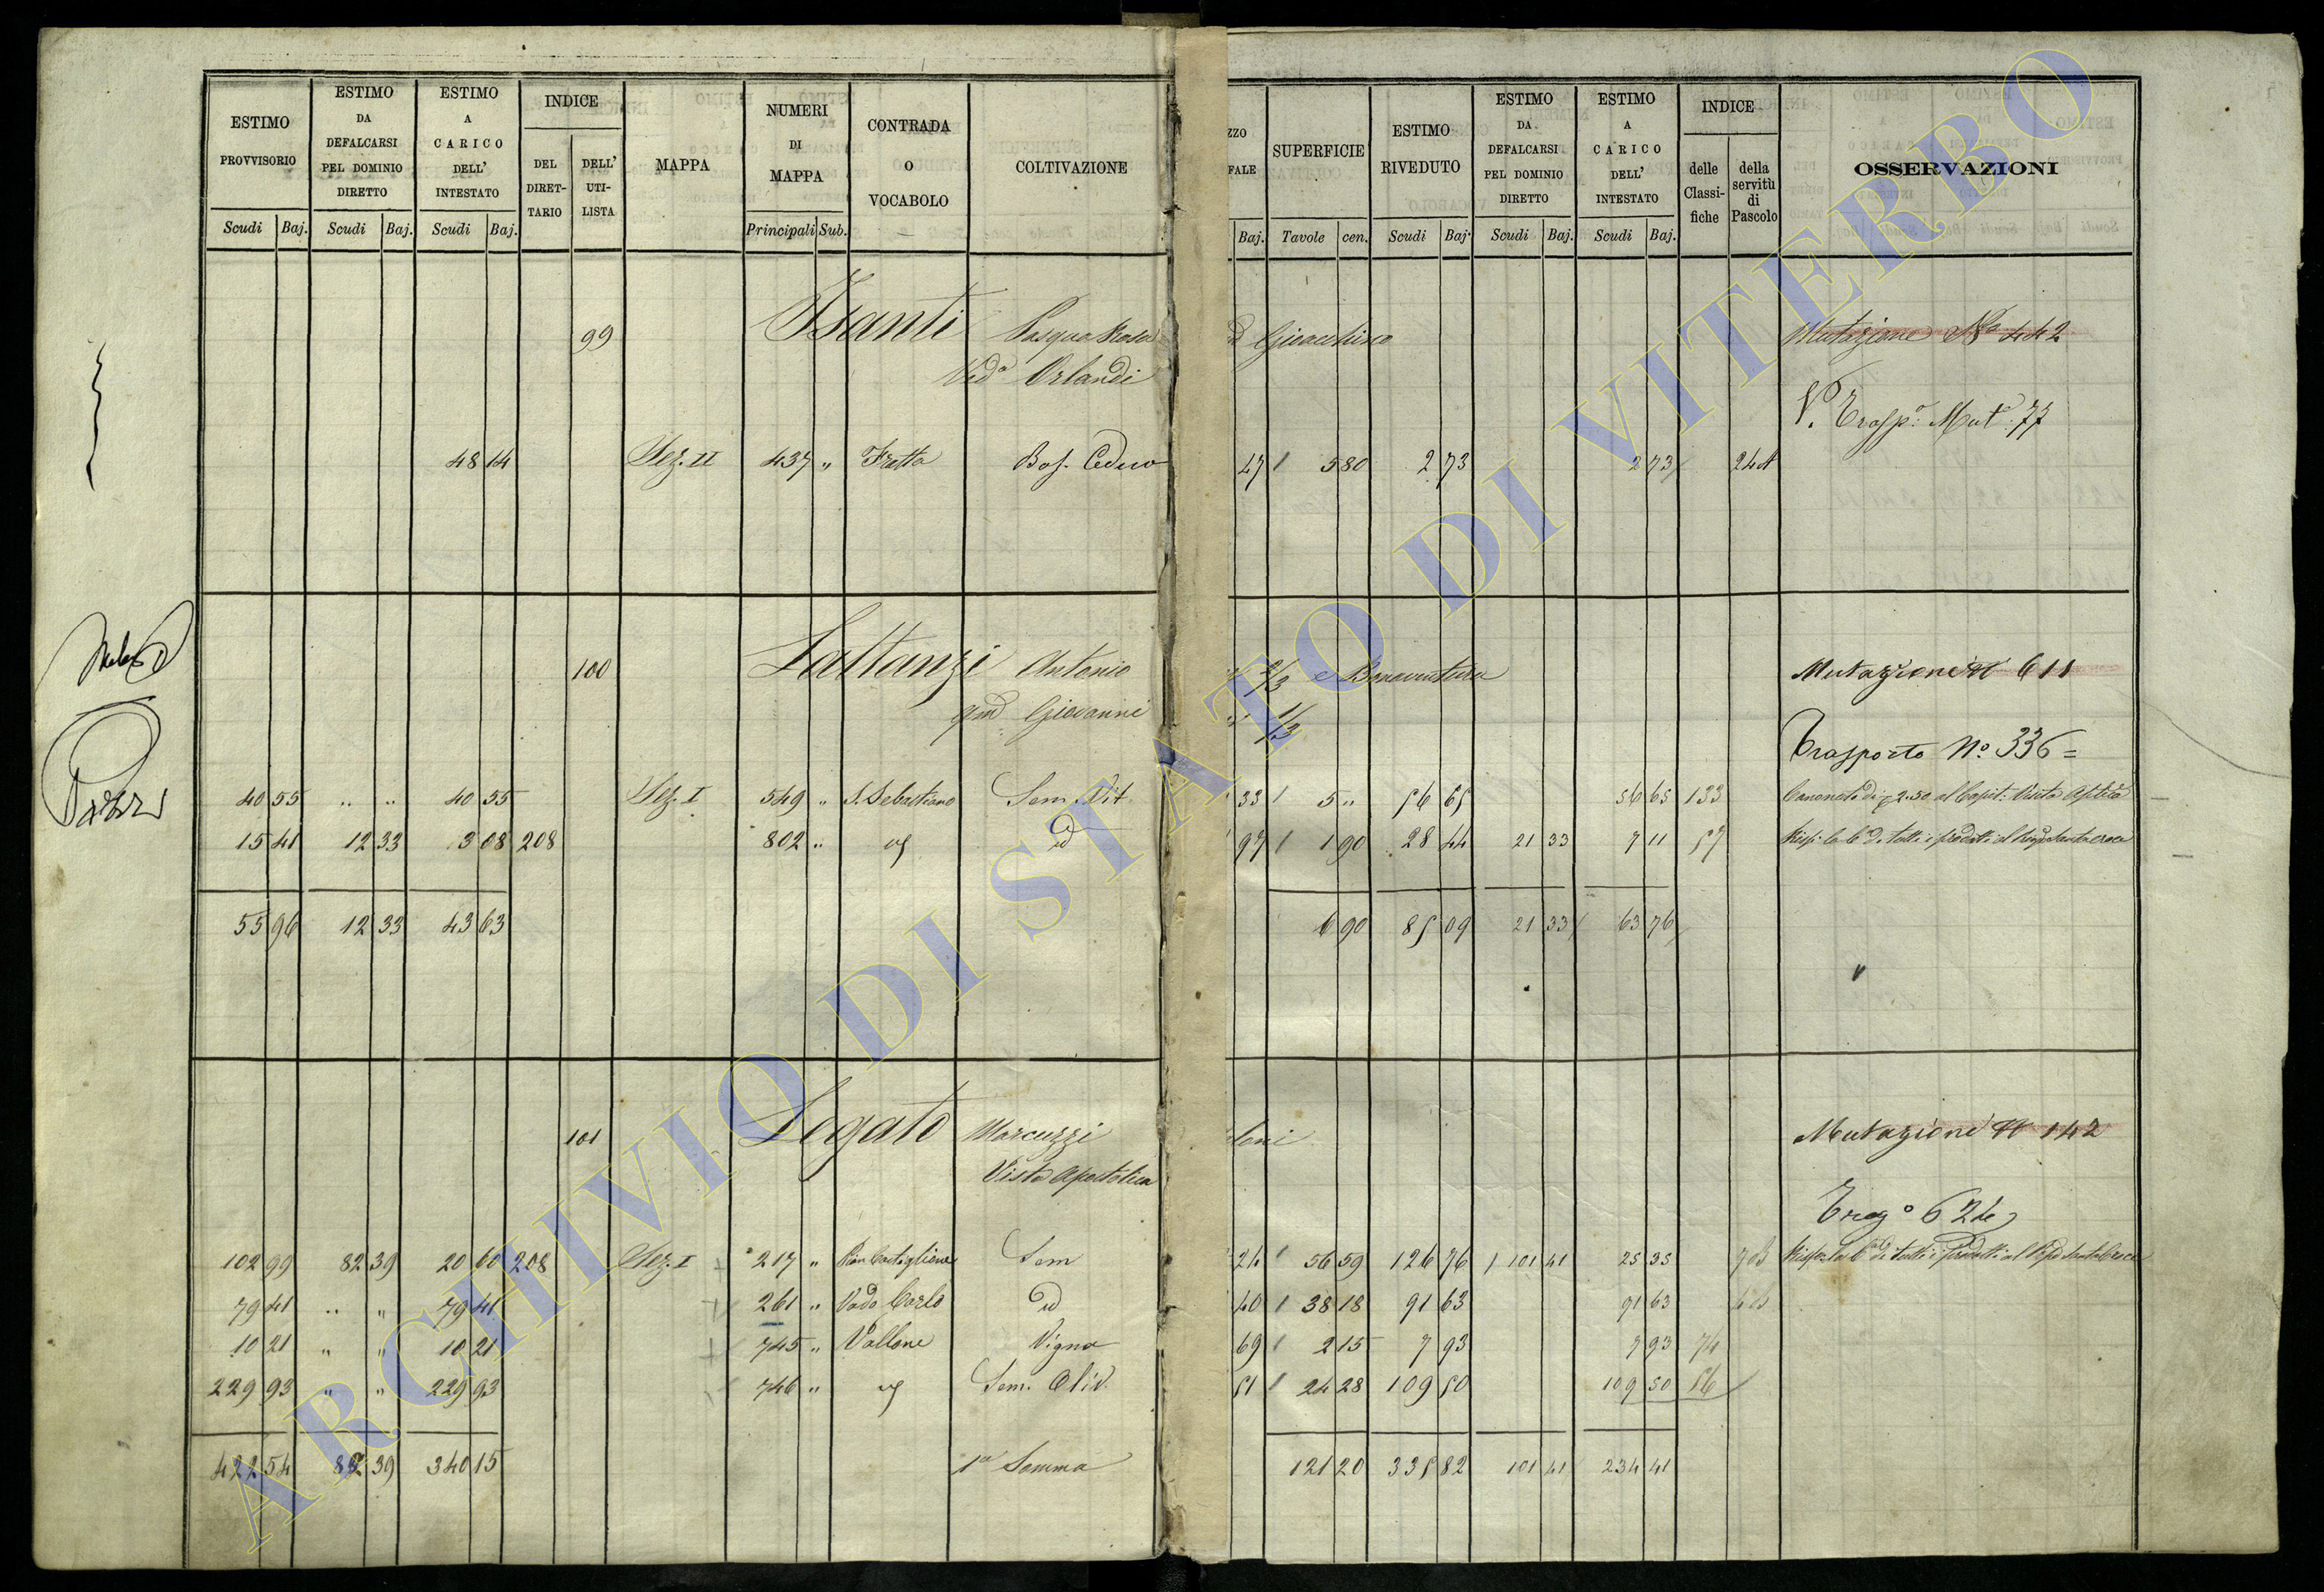 ESTIMO PROVVISORIO Scudi Baj.
ESTIMO DA DEFALCARSI PEL DOMINIO DIRETTO Scudi Baj.
ESTIMO A CARICO DELL' INTESTATO Scudi Baj.
INDICE DEL DIRET-TARIO DELL' UTI-LISTA
MAPPA
NUMERI DI MAPPA Principali Sub.
CONTRADA O VOCABOLO
COLTIVAZIONE
ZZO FALE Baj.
SUPERFICIE Tavole cen.
ESTIMO RIVEDUTO Scudi Baj.
ESTIMO DA DEFALCARSI PEL DOMINIO DIRETTO Scudi Baj.
ESTIMO A CARICO DELL' INTESTATO Scudi Baj.
INDICE delle Classi-fiche della servitù di Pascolo
OSSERVAZIONI
99 Isanti Pasqua Rosa Gioacchino Mutazione No 442
Veda Orlandi
V. Trasp.o Mut. 77
48 14 Sez. II 437 " Fratta Bos. Ceduo 47 5 80 2 73 2 73 24
100 Lattanzi Antonio 2/3 e Bonaventura Mutazione N 611
qm Giovanni 1/3
Trasporto No. 336 =
40 55 " " 40 55 Sez. I 549 " S. Sebastiano Sem. Vit. 33 5 " 56 65 56 65 133 2.50 al Capit:
15 41 12 33 3 08 208 802 " id 97 1 90 28 44 21 33 7 11 57
55 96 12 33 43 63 6 90 85 09 21 33 63 76
101 Legato Marcuzzi Mutazione N 142
Visita Apostolica
624
102 99 82 39 20 60 208 Sez. I 217 " Pian Castiglione Sem 24 56 59 126 76 101 41 25 35
79 41 " " 79 41 261 " Vado Carlo id 40 38 18 91 63 91 63
10 21 " " 10 21 745 " Vallone Vigna 69 2 15 7 93 7 93 74
229 93 " " 229 93 746 " Sem. Oliv. 51 24 28 109 50 109 50 56
422 54 82 39 340 15 1a Somma 121 20 335 82 101 41 234 41
ARCHIVIO DI STATO DI VITERBO